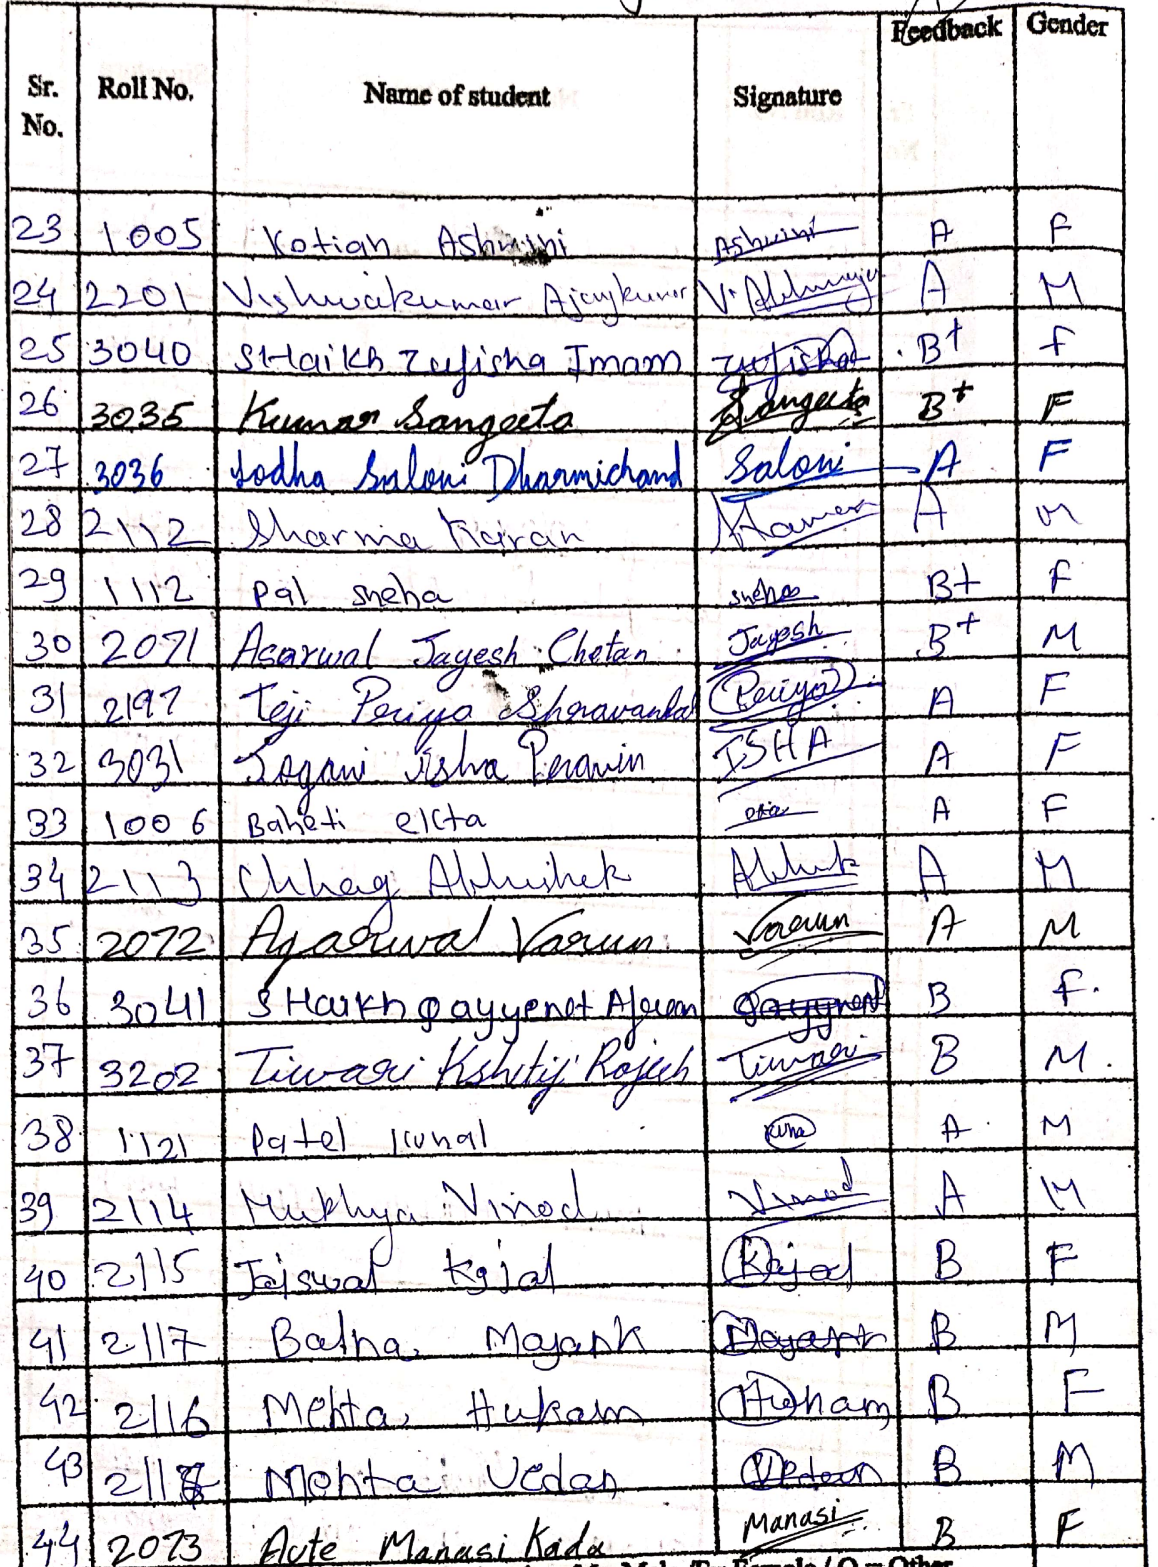 Sr. No. Roll No. Name of student Signature Feedback Gender
23 1005 Kotian Ashwini Ashwini A F
24 2201 Vishwakumar Ajaykumar V. A M
25 3040 SHaikh Zufisha Imam Zufisha B+ F
26 3035 Kumar Sangeeta Sangeeta B+ F
27 3036 Lodha Saloni Dharmichand Saloni A F
28 2112 Sharma Karan A M
29 1112 Pal sneha sneha B+ F
30 2071 Asarwal Jayesh Chetan Jayesh B+ M
31 2197 Teji Periya Shravanlal Periya A F
32 3031 Jogani Isha Pravin ISHA A F
33 1006 Baheti ekta ekta A F
34 2113 Chhag Abhishek A M
35 2072 Agarwal Varun Varun A M
36 3041 SHaikh Qayyenat Afreen B F.
37 3202 Tiwari Kshitij Rajesh Tiwari B M.
38 1121 Patel kunal kuna A M
39 2114 Mukhya Vinod Vinod A M
40 2115 Jaiswal Kajal Kajal B F
41 2117 Batna Mayank Mayank B M
42 2116 Mehta Hukam B F
43 2118 Mehta Vedan Vedan B M
44 2073 Aute Manasi Kada Manasi B F